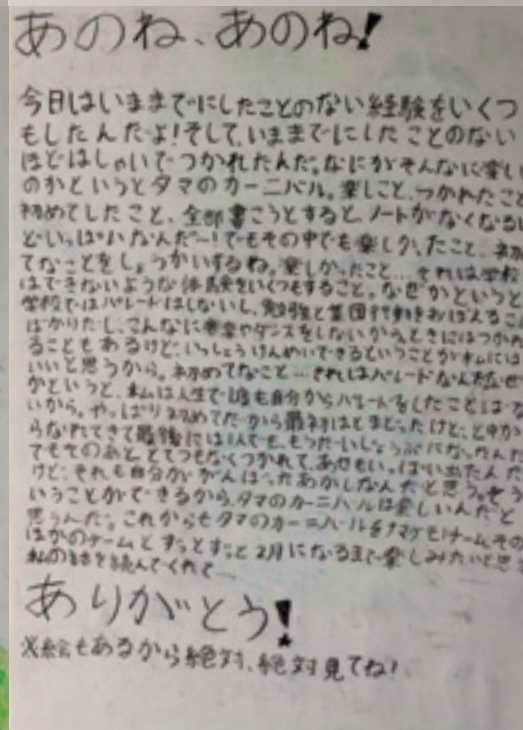 あのね、あのね!
今日はいままでにしたことのない経験をいくつ
もしたんだよ!そして、いままでにしたことのない
ほどはしゃいでつかれたんだ。なにがそんなに楽し
のかというとタマのカーニバル。楽しこと、つかれたこと
初めてしたこと、全部書こうとすると、ノートがなくなる
どいっぱいなんだー!でもその中でも楽しかったこと、初め
てなことをしょうかいするね。楽しかったこと…それは学校
はできないような体験をいくつもすること。なぜかというと
学校ではパレードはしないし、勉強と集団行動をおぼえるこ
ばかりだし、こんなに音楽やダンスをしないから。ときにはつかれ
ることもあるけど、いっしょうけんめいできるということが私には
いいと思うから。初めてなこと…それはパレードなんだなぜ
かというと、私は人生で1度も自分からパレードをしたことは
いから。やっぱり初めてだから最初はとまどったけど、と中か
らなれてきて最後には1人でも、もうだいじょうぶになったんだ
でもそのあと、とてつもなくつかれて、あせもいっぱい出たんだ
けど、それも自分ががんばったあかしなんだと思う。そう
いうことができるから、タマのカーニバルは楽しいんだと
思うんだ。これからもタマのカーニバルをナマケモノチーム、その
ほかのチームとずっとずっと2月になるまで楽しみたいと思
私の話を読んでくれて…
ありがとう!
※絵もあるから絶対、絶対見てね!